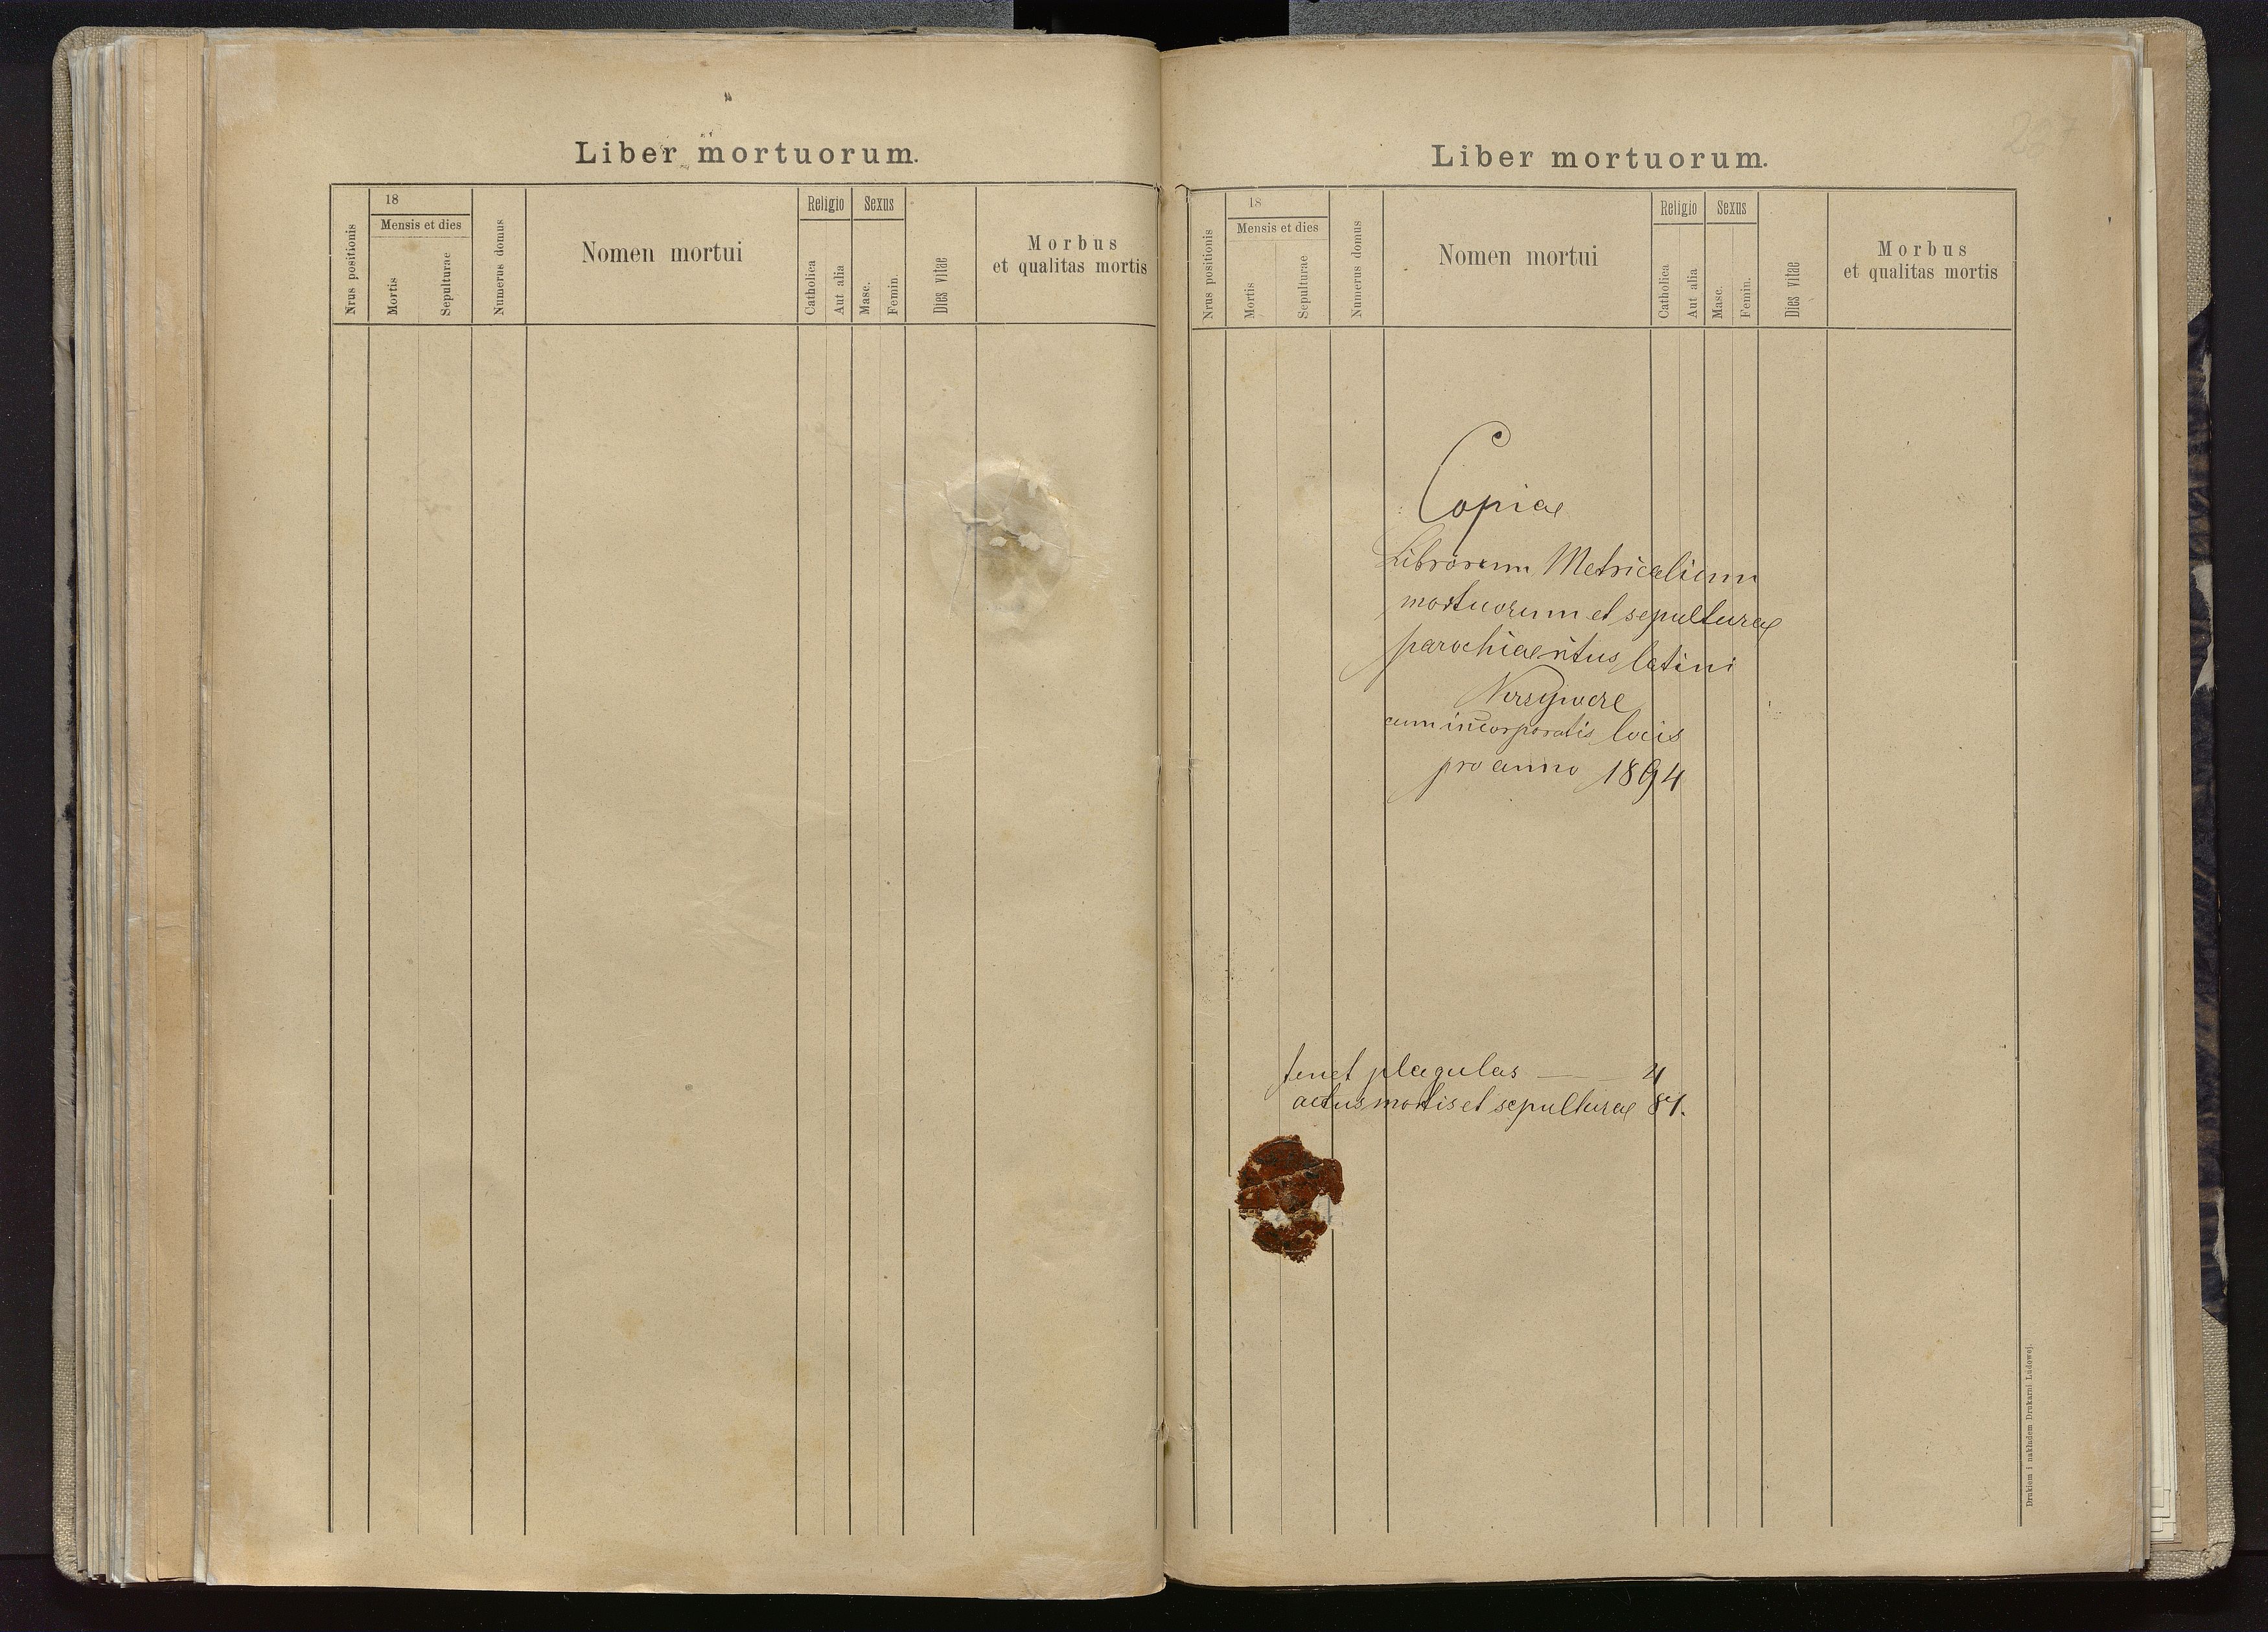 Liber mortuorum.
Nrus positionis
18
Mensis et dies
Mortis
Sepulturae
Numerus domus
Nomen mortui
Religio
Catholica
Aut alia
Sexus
Masc.
Femin.
Dies vitae
Morbus
et qualitas mortis
Liber mortuorum.
Nrus positionis
18
Mensis et dies
Mortis
Sepulturae
Numerus domus
Nomen mortui
Religio
Catholica
Aut alia
Sexus
Masc.
Femin.
Dies vitae
Morbus
et qualitas mortis
Copiae
Librorum Metricalium
mortuorum et sepulturae
parochiae ritus latini
cum incorporatis locis
pro anno 1894
tenet plagulas — 4
actus mortis et sepulturae 87.
Drukiem i nakładem Drukarni Ludowej.